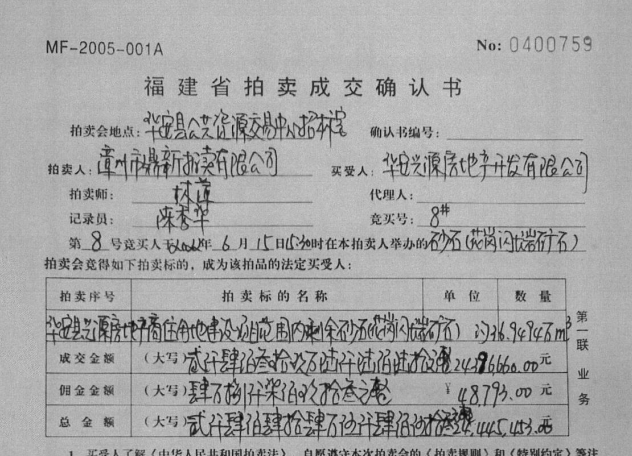 MF-2005-001A No: 0400759
福建省拍卖成交确认书
拍卖会地点: 华安县公共资源交易中心招标室 确认书编号:
拍卖人: 漳州市鼎新拍卖有限公司 买受人: 华安兴源房地产开发有限公司
拍卖师: 林 代理人:
记录员: 陈秀华 竞买号: 8#
第 8 号竞买人于 年 6 月 15 日15:30时在本拍卖人举办的 砂石(花岗闪长岩矿石)
拍卖会竞得如下拍卖标的,成为该拍品的法定买受人:
拍卖序号 拍卖标的名称 单位 数量
华安县兴源房地产商住用地建设项目范围内剩余砂石(花岗闪长岩矿石) 约36.9494万m³
成交金额 (大写) 贰仟肆佰叁拾玖万陆仟陆佰陆拾元整 ¥24396660.00元
佣金金额 (大写) 肆万捌仟柒佰玖拾叁元整 ¥ 48,793.00 元
总金额 (大写) 贰仟肆佰肆拾肆万伍仟肆佰伍拾叁元整 24,445,453.00 元
第一联 业务
1. 买受人了解《中华人民共和国拍卖法》,自愿遵守本次拍卖会的《拍卖规则》和《特别约定》等注